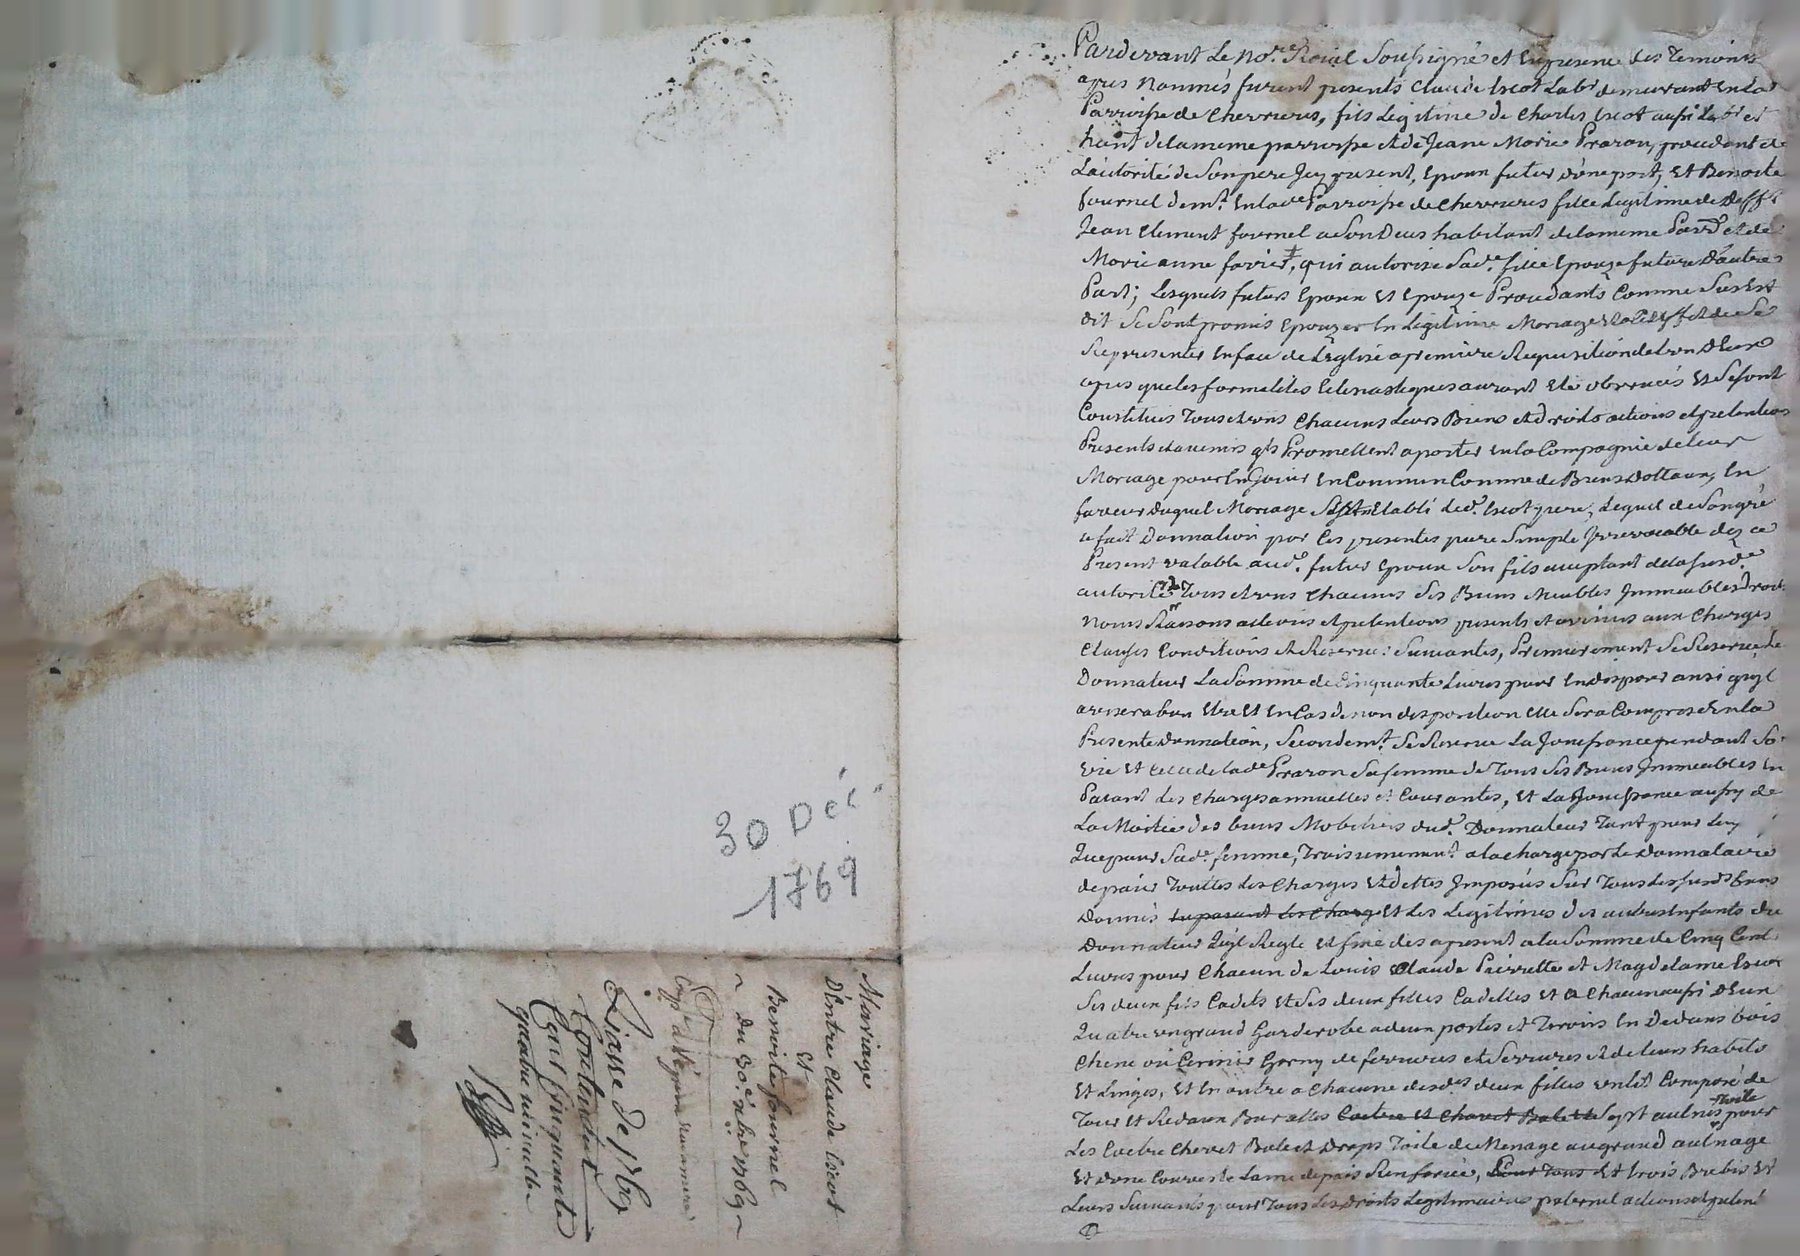 30 Déc.
1769
Mariage
D'Entre Claude Escot
Et
Benoite fournel
Du 30.e xbre 1769
Liasse de 1769
Pardevant Le No.re Roial Soussigné et En presence des Temoins
apres Nommés furent presents Claude Escot Lab.r demeurant En La
Parroisse de Chevrieres, fils Legitime de Charles Escot aussi Lab.r et
hant de la meme parroisse et de Jeane Marie Prazon, procedant de
L'autorité de Son pere Icy present, Epoux futur d'une part, Et Benoite
fournel dem.t En lad.e Parroisse de Chevrieres fille Legitime de Deff.t
Jean Clement fournel a Son Deces habitant de la meme Parr.e et de
Marie anne favier, qui autorise Sad.e fille Epouze future D'autre
Part; Lesquels futurs Epoux Et Epouze Procedants Comme Sus Est
dit Se Sont promis Epouzer En Legitime Mariage Et a Cet Effet de Se
Representer En face de L'Eglise a premiere Requisition de L'un D'Eux
apres que les formalités Eclesiastiques auront Eté observées Et Se Sont
Constitués Tous et uns Chacuns Leurs Biens Et Droits actions et pretentions
Presents et avenirs q'ls Promettent aporter En la Compagnie de leur
Mariage pour En Jouir En Commun Comme de Biens Dottaux, En
faveur Duquel Mariage Etabli led.t Escot pere, Lequel de Son gré
a fait Donnation par Ces presentes pure Simple Irrevocable dez ce
Present valable aud.t futur Epoux Son fils acceptant de la Susd.e
autorité De Tous et uns Chacuns Ses Biens Meubles Immeubles Droits
Noms Raisons actions et pretentions presents et avenirs aux Charges
Clauses Conditions et Reserves Suivantes, Premierement Se Reserve Le
Donnateur La Somme de Cinquante Livres pour En disposer ainsi qu'il
avisera bon Etre Et En Cas de non disposition Elle Sera Comprise En la
Presente Donnation, Secondem.t Se Reserve La Jouissance pendant Sa
vie Et Celle de lad.e Prazon Sa femme de Tous Ses Biens Immeubles En
Paiant Les Charges annuelles et Courantes, Et La Jouissance aussy de
La Moitié des biens Mobiliers dud.t Donnateur Tant pour Luy
Que pour Sad.e femme, Troisiemement a la charge par Le Donnataire
de païer Touttes Les Charges Et dettes Imposées Sur Tous Les Susd.s biens
Donnés En paiant Les Charg Et Les Legitimes des autres Enfants du
Donnateur Qu'il Regle Et fixe des a present a la Somme de Cinq Cent
Livres pour Chacun de Louis Claude Pierrette et Magdelaine Escot
Ses deux fils Cadets Et Ses deux filles Cadettes Et a Chacun aussi D'Eux
Quatre un grand Garderobe a deux portes Et Tiroirs En Dedans bois
Chene ou Cerisier Garny de ferrures et Serrures et de leurs habits
Et Linges, Et En outre a Chacune desd.es deux filles un lit Composé de
Tour Et Rideaux Burattes Coetre Et Chevet Bale Et Sept aulnes Toile pour
Les Coetre Chevet Bale et Draps Toile de Menage au grand aulnage
Et d'une Couverte Laine de pais Renforcée, Pour Tous Et trois Brebis Et
Leurs Suivants pour Tous Les Droits Legitimaires paternel actions et pretent